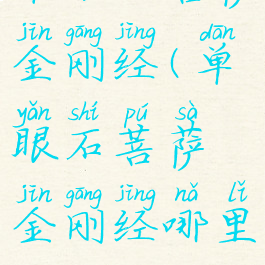 jīn gāng jīng dān
金刚经(单
yǎn shí pú sà
眼石菩萨
jīn gāng jīng nǎ lǐ
金刚经哪里